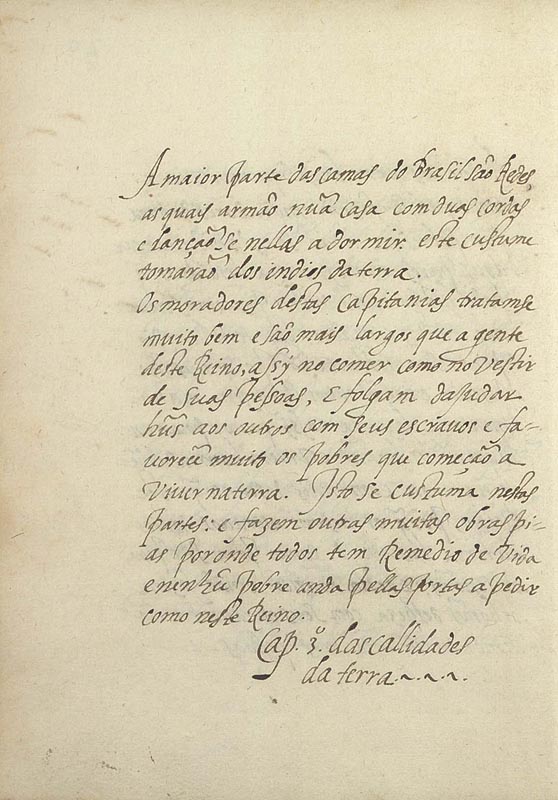 A maior parte das camas do Brasil são Redes,
as quais armão nũa casa com duas cordas
e lanção se nellas a dormir. este custume
tomárão dos indios da terra.
Os moradores destas capitanias tratamse
muito bem e são mais largos que a gente
deste Reino, assy no comer como no vestir
de suas pessoas, E folgam dajudar
hũs aos outros com seus escravos e fa-
vorecẽ muito os pobres que começão a
viver na terra. Isto se custuma nestas
partes: e fazem outras muitas obras pi-
as por onde todos tem Remedio de vida
e nenhũ pobre anda pellas portas a pedir
como neste Reino.
Cap. 3.º das callidades
da terra